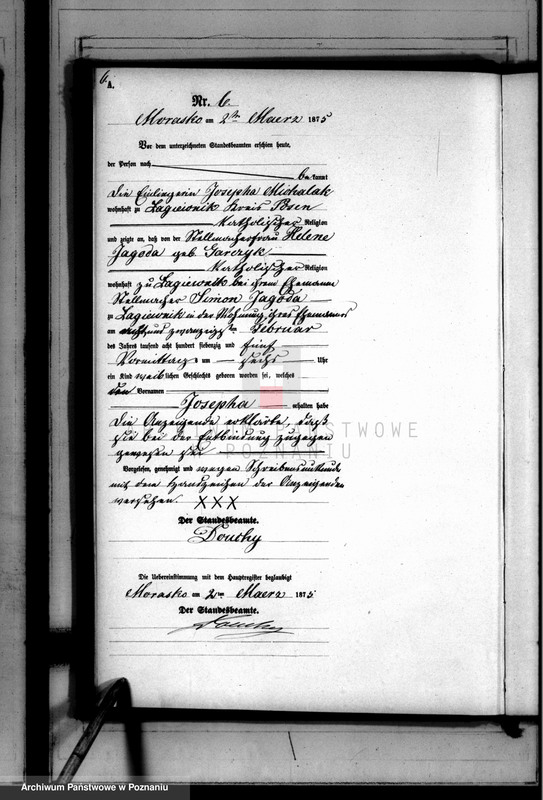 6.
A.
Nr. 6.
Morasko am 2ten Maerz 1875
Vor dem unterzeichneten Standesbeamten erschien heute,
der Person nach
be kannt
die Einliegerin Josepha Michalak
wohnhaft zu Lagiewnik Kreis Posen
katholischer Religion
und zeigte an, daß von der Stellmacherfrau Helene
Jagoda geb. Garczyk
katholischer Religion
wohnhaft zu Lagiewnik bei ihrem Ehemann
Stellmacher Simon Jagoda
zu Lagiewnik in der Wohnung ihres Ehemannes
am acht und zwanzigsten Februar
des Jahres tausend acht hundert siebenzig und fünf
Vormittags um sechs Uhr
ein Kind weiblichen Geschlechts geboren worden sei, welches
den Vornamen
Josepha erhalten habe
Die Anzeigende erklärte, dass
sie bei der Entbindung zugegen
gewesen sei
PAŃSTWOWE
POZNANIU
Vorgelesen, genehmigt und wegen Schreibensunkunde
mit dem Handzeichen der Anzeigenden
versehen. XXX
Der Standesbeamte.
Douchy
Die Uebereinstimmung mit dem Hauptregister beglaubigt
Morasko am 2ten Maerz 1875
Der Standesbeamte.
Douchy
Archiwum Państwowe w Poznaniu